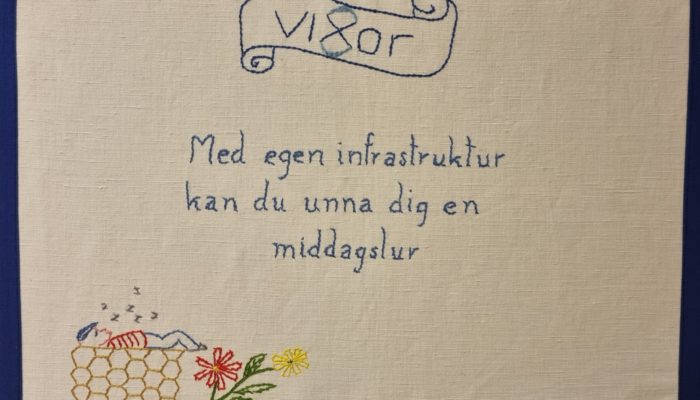 vi8or
Med egen infrastruktur
kan du unna dig en
middagslur
z z z z z z